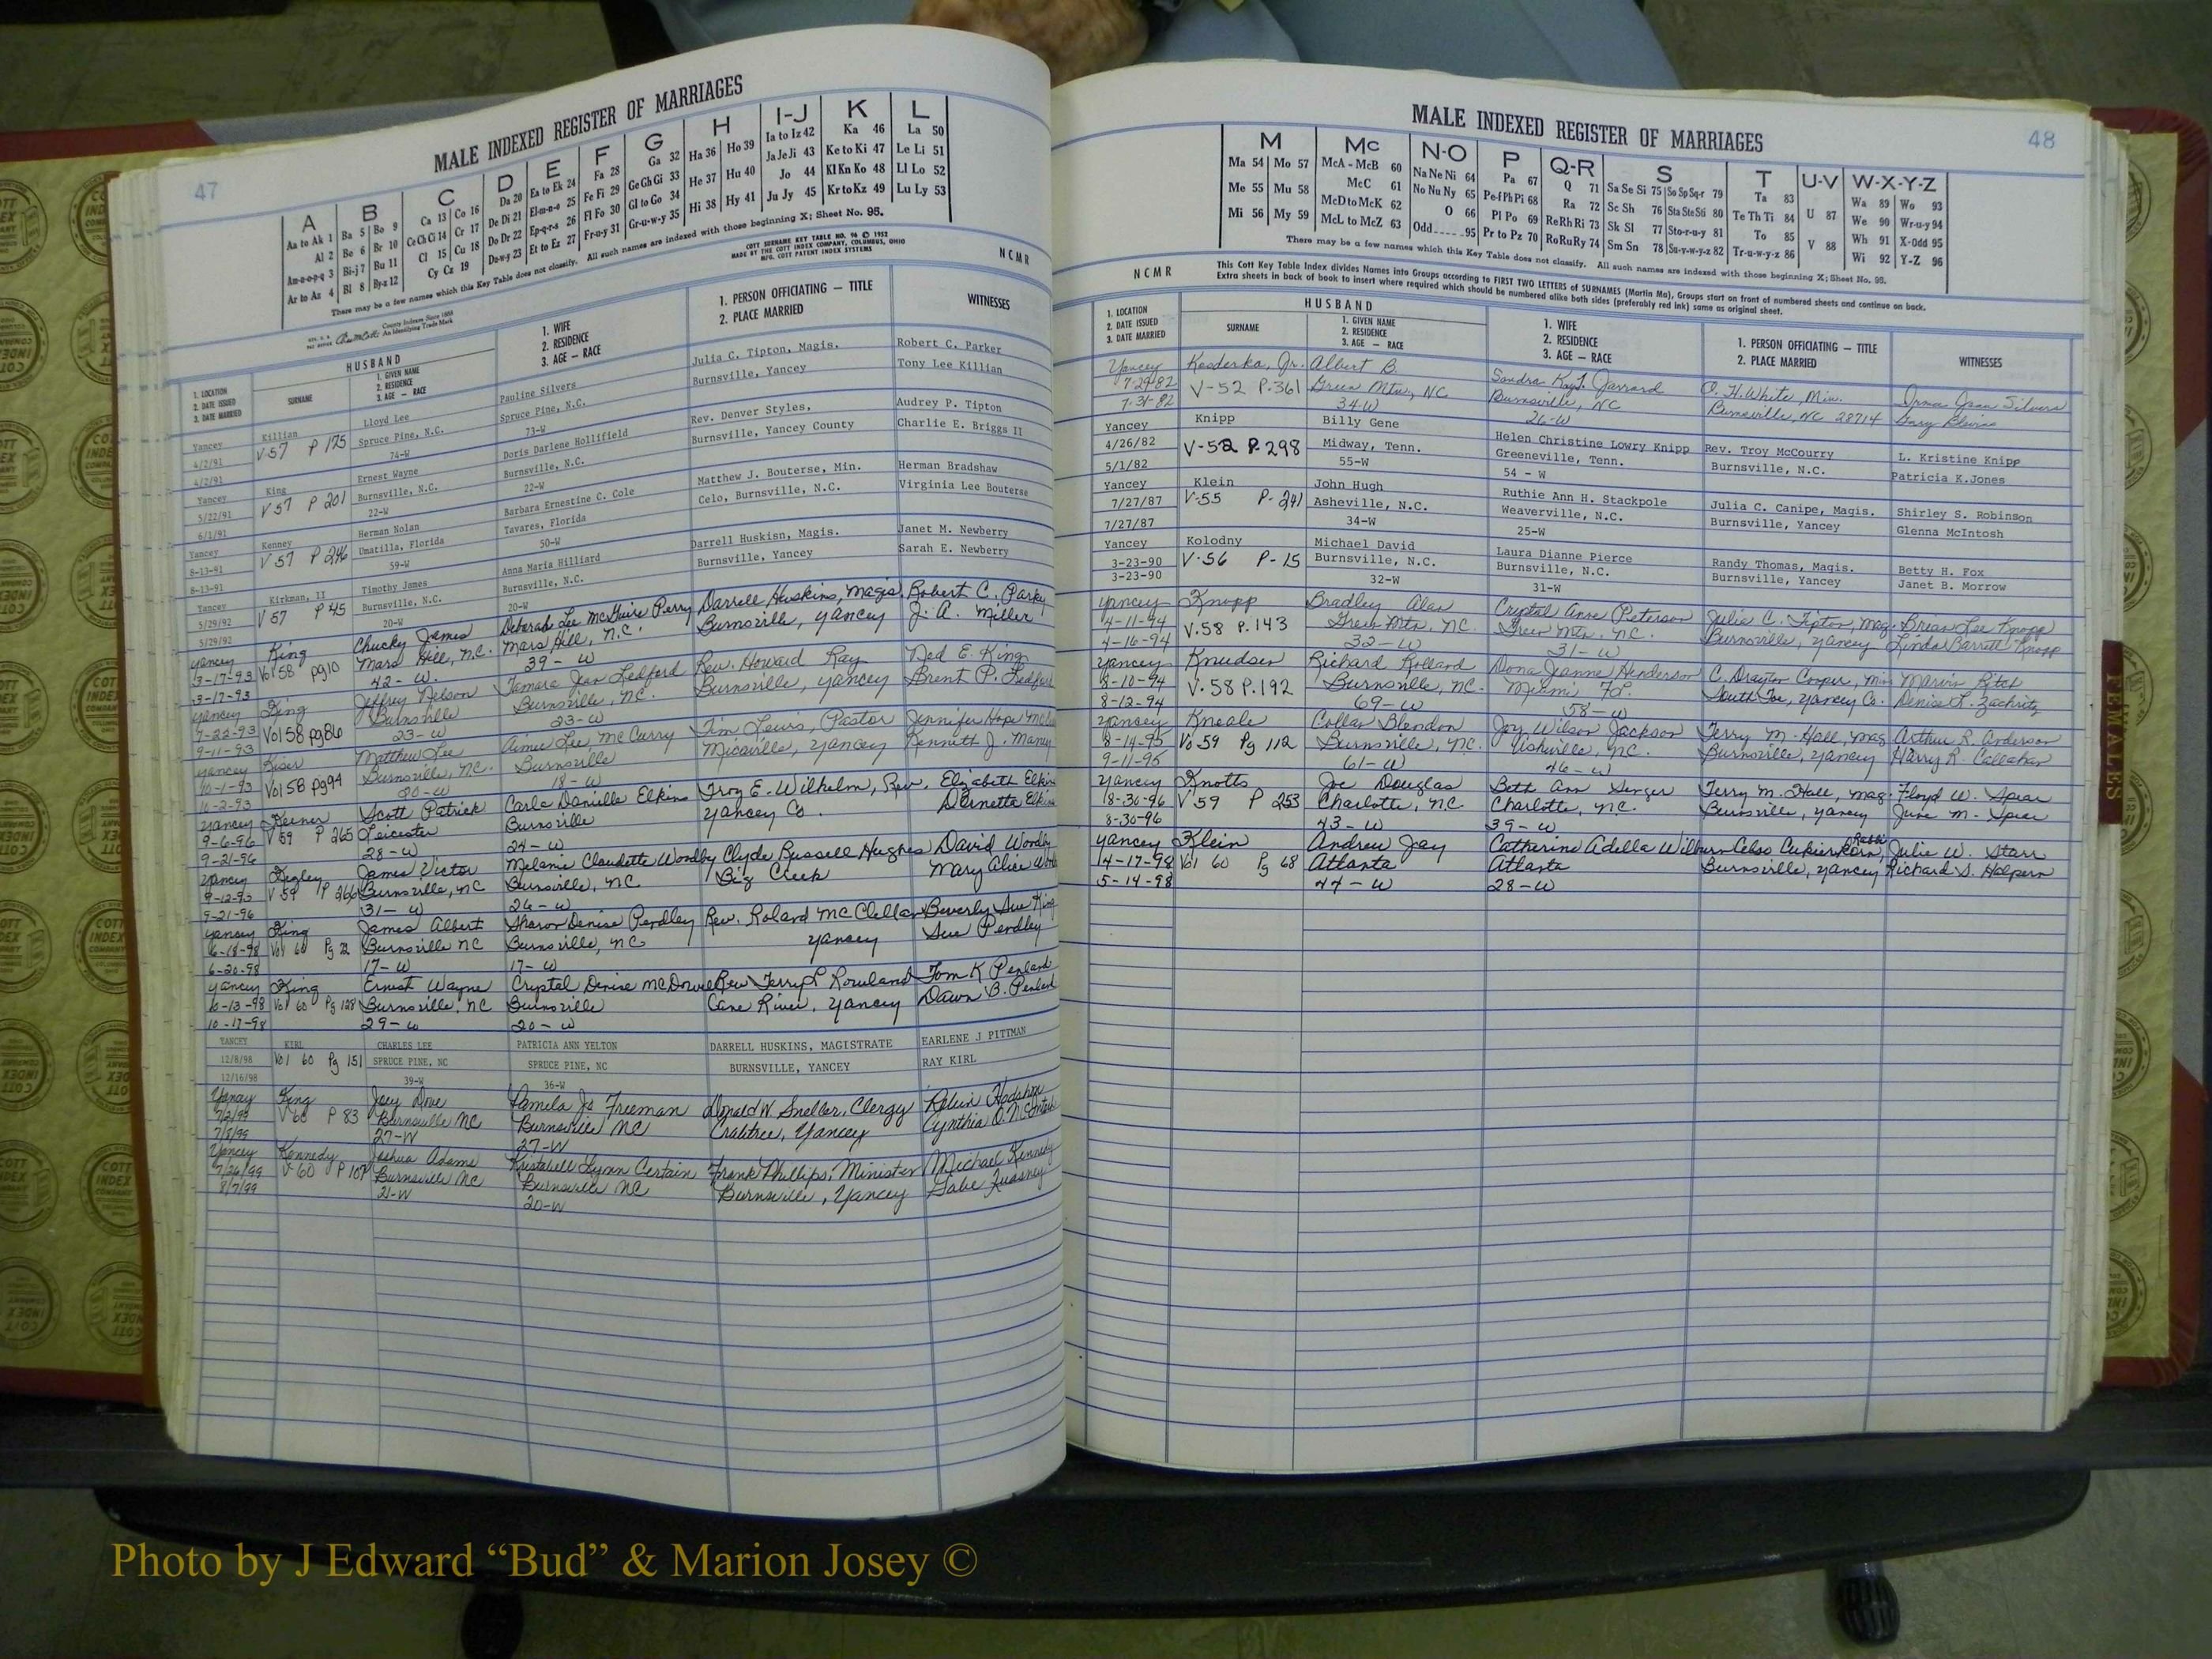 47
MALE INDEXED REGISTER OF MARRIAGES
A B C D E F G H I-J K L
Aa to Ak 1 Ba 5 Bo 9 Ca 13 Co 16 Da 20 Ea to Ek 24 Fa 28 Ga 32 Ha 36 Ho 39 Ia to Iz 42 Ka 46 La 50
Al 2 Be 6 Br 10 Ce Ch Ci 14 Cr 17 De Di 21 El-m-n-o 25 Fe Fi 29 Ge Gh Gi 33 He 37 Hu 40 Ja Je Ji 43 Ke to Ki 47 Le Li 51
Am-n-o-p-q 3 Bi-j 7 Bu 11 Cl 15 Cu 18 Do Dr 22 Ep-q-r-s 26 Fl Fo 30 Gl to Go 34 Hi 38 Hy 41 Jo 44 Kl Kn Ko 48 Ll Lo 52
Ar to Az 4 Bl 8 By-z 12 Cy Cz 19 Du-w-y 23 Et to Ez 27 Fr-u-y 31 Gr-u-w-y 35 Ju Jy 45 Kr to Kz 49 Lu Ly 53
There may be a few names which this Key Table does not classify. All such names are indexed with those beginning X; Sheet No. 95.
COTT SURNAME KEY TABLE NO. 96 © 1952
MADE BY THE COTT INDEX COMPANY, COLUMBUS, OHIO
MFG. COTT PATENT INDEX SYSTEMS
County Indexes Since 1888
An Identifying Trade Mark
NCMR
HUSBAND
1. LOCATION
2. DATE ISSUED
3. DATE MARRIED
SURNAME
1. GIVEN NAME
2. RESIDENCE
3. AGE — RACE
1. WIFE
2. RESIDENCE
3. AGE — RACE
1. PERSON OFFICIATING — TITLE
2. PLACE MARRIED
WITNESSES
Yancey Killian Lloyd Lee Pauline Silvers Julia C. Tipton, Magis. Robert C. Parker
4/2/91 V-57 P 175 Spruce Pine, N.C. Spruce Pine, N.C. Burnsville, Yancey Tony Lee Killian
4/2/91 74-W 73-W
Yancey King Ernest Wayne Doris Darlene Hollifield Rev. Denver Styles, Audrey P. Tipton
5/22/91 V 57 P 201 Burnsville, N.C. Burnsville, N.C. Burnsville, Yancey County Charlie E. Briggs II
6/1/91 22-W 22-W
Yancey Kenney Herman Nolan Barbara Ernestine C. Cole Matthew J. Bouterse, Min. Herman Bradshaw
8-13-91 V 57 P 246 Umatilla, Florida Tavares, Florida Celo, Burnsville, N.C. Virginia Lee Bouterse
8-13-91 59-W 50-W
Yancey Kirkman, II Timothy James Anna Maria Hilliard Darrell Huskisn, Magis. Janet M. Newberry
5/29/92 V 57 P 45 Burnsville, N.C. Burnsville, N.C. Burnsville, Yancey Sarah E. Newberry
5/29/92 20-W 20-W
Yancey King Chucky James Deborah Lee McGuire Perry Darrell Huskins, Magis. Robert C. Parker
3-17-93 Vol 58 pg 10 Mars Hill, N.C. Mars Hill, N.C. Burnsville, Yancey J. A. Miller
3-17-93 42- W. 39 - W
Yancey King Jeffrey Nelson Tamara Jan Ledford Rev. Howard Ray Ned E. King
7-22-93 Vol 58 pg 86 Burnsville Burnsville, NC. Burnsville, Yancey Brent P. Ledford
9-11-93 23-W 23-W
Yancey Kiser Matthew Lee Aimee Lee McCurry Tim Lewis, Pastor Jennifer Hope
10-1-93 Vol 58 pg 94 Burnsville, NC. Burnsville Micaville, Yancey Kenneth J. Maney
10-2-93 20-W 18-W
Yancey Keener Scott Patrick Carla Danielle Elkins Troy E. Wilhelm, Rev. Elizabeth Elkins
9-6-96 V 59 P 265 Leicester Burnsville Yancey Co. Dernetta Elkins
9-21-96 28-W 24-W
Yancey Kegley James Victor Melanie Claudette Woodby Clyde Russell Hughes David Woodby
9-12-95 V 59 P 266 Burnsville, NC Burnsville, NC Big Creek Mary Alice
9-21-96 31- W 26-W
Yancey King James Albert Sharon Denise Pendley Rev. Roland McClellan Beverly Sue King
6-18-98 Vol 60 Pg 21 Burnsville NC Burnsville, NC Yancey Sue Pendley
6-20-98 17-W 17-W
Yancey King Ernest Wayne Crystal Denise McDowell Rev Terry L Rowland Tom K Penland
10-13-98 Vol 60 Pg 128 Burnsville, NC Burnsville Cane River, Yancey Dawn B. Penland
10-17-98 29-W 20-W
YANCEY KIRL CHARLES LEE PATRICIA ANN YELTON DARRELL HUSKINS, MAGISTRATE EARLENE J PITTMAN
12/8/98 Vol 60 Pg 151 SPRUCE PINE, NC SPRUCE PINE, NC BURNSVILLE, YANCEY RAY KIRL
12/16/98 39-W 36-W
Yancey King Joey Dove Pamela Jo Freeman Donald W Sneller, Clergy Robin Hodshon
7/2/99 V 60 P 83 Burnsville NC Burnsville NC Crabtree, Yancey Cynthia
7/3/99 27-W 27-W
Yancey Kennedy Joshua Adams Kristabell Lynn Certain Frank Phillips, Minister Michael Kennedy
7/26/99 V-60 P 107 Burnsville NC Burnsville NC Burnsville, Yancey Gabe
8/7/99 21-W 20-W
MALE INDEXED REGISTER OF MARRIAGES
48
M Mc N-O P Q-R S T U-V W-X-Y-Z
Ma 54 Mo 57 McA - McB 60 Na Ne Ni 64 Pa 67 Q 71 Sa Se Si 75 So Sp Sq-r 79 Ta 83 U 87 Wa 89 Wo 93
Me 55 Mu 58 McC 61 No Nu Ny 65 Pe-f Ph Pi 68 Ra 72 Sc Sh 76 Sta Ste Sti 80 Te Th Ti 84 V 88 We 90 Wr-u-y 94
Mi 56 My 59 McD to McK 62 O 66 Pl Po 69 Re Rh Ri 73 Sk Sl 77 Sto-r-u-y 81 To 85 Wh 91 X-Odd 95
McL to McZ 63 Odd 95 Pr to Pz 70 Ro Ru Ry 74 Sm Sn 78 Su-v-w-y-z 82 Tr-u-w-y-z 86 Wi 92 Y-Z 96
There may be a few names which this Key Table does not classify. All such names are indexed with those beginning X; Sheet No. 95.
NCMR
This Cott Key Table Index divides Names into Groups according to FIRST TWO LETTERS of SURNAMES (Martin Ma), Groups start on front of numbered sheets and continue on back.
Extra sheets in back of book to insert where required which should be numbered alike both sides (preferably red ink) same as original sheet.
HUSBAND
1. LOCATION
2. DATE ISSUED
3. DATE MARRIED
SURNAME
1. GIVEN NAME
2. RESIDENCE
3. AGE — RACE
1. WIFE
2. RESIDENCE
3. AGE — RACE
1. PERSON OFFICIATING — TITLE
2. PLACE MARRIED
WITNESSES
Yancey Kosderka, Jr. Albert B. Sandra Jarrard O. H. White, Min. Orma Jean Silvers
7-29-82 V-52 P.361 Green Mtn, NC Burnsville, NC Burnsville, NC 28714 Gary Blevins
7-31-82 34 W 26-W
Yancey Knipp Billy Gene Helen Christine Lowry Knipp Rev. Troy McCourry L. Kristine Knipp
4/26/82 V-52 P.298 Midway, Tenn. Greeneville, Tenn. Burnsville, N.C. Patricia K.Jones
5/1/82 55-W 54 - W
Yancey Klein John Hugh Ruthie Ann H. Stackpole Julia C. Canipe, Magis. Shirley S. Robinson
7/27/87 V-55 P-241 Asheville, N.C. Weaverville, N.C. Burnsville, Yancey Glenna McIntosh
7/27/87 34-W 25-W
Yancey Kolodny Michael David Laura Dianne Pierce Randy Thomas, Magis. Betty H. Fox
3-23-90 V-56 P-15 Burnsville, N.C. Burnsville, N.C. Burnsville, Yancey Janet B. Morrow
3-23-90 32-W 31-W
Yancey Knopp Bradley Alan Crystal Anne Peterson Julia C. Tipton, Mag. Brian Lee Knopp
4-11-94 V.58 P.143 Green Mtn, NC. Green Mtn. NC. Burnsville, Yancey Linda Barrett Knopp
4-16-94 32-W 31-W
Yancey Knudsen Richard Rolland Dona Jeanne Henderson C. Drayton Cooper, Min Marvin Ritch
8-10-94 V.58 P.192 Burnsville, NC. Miami Fl. South Toe, Yancey Co. Denise L. Zachritz
8-12-94 69-W 58-W
Yancey Kneale Collas Blendon Joy Wilson Jackson Terry M. Hall, Mag Arthur R. Anderson
8-14-95 Vo.59 Pg 112 Burnsville, NC. Asheville, NC. Burnsville, Yancey Harry R. Callahan
9-11-95 61-W 46-W
Yancey Knotts Joe Douglas Beth Ann Senger Terry M. Hall, Mag. Floyd W. Spear
8-30-96 V 59 P 253 Charlotte, NC. Charlotte, NC. Burnsville, Yancey June M. Spear
8-30-96 43-W 39-W
Yancey Klein Andrew Jay Catherine Adella Wilburn Celso Cukierkorn, Rabbi Julie W. Starr
4-17-98 Vol 60 Pg 68 Atlanta Atlanta Burnsville, Yancey Richard S. Halpern
5-14-98 44-W 28-W
FEMALES
Photo by J Edward “Bud” & Marion Josey ©